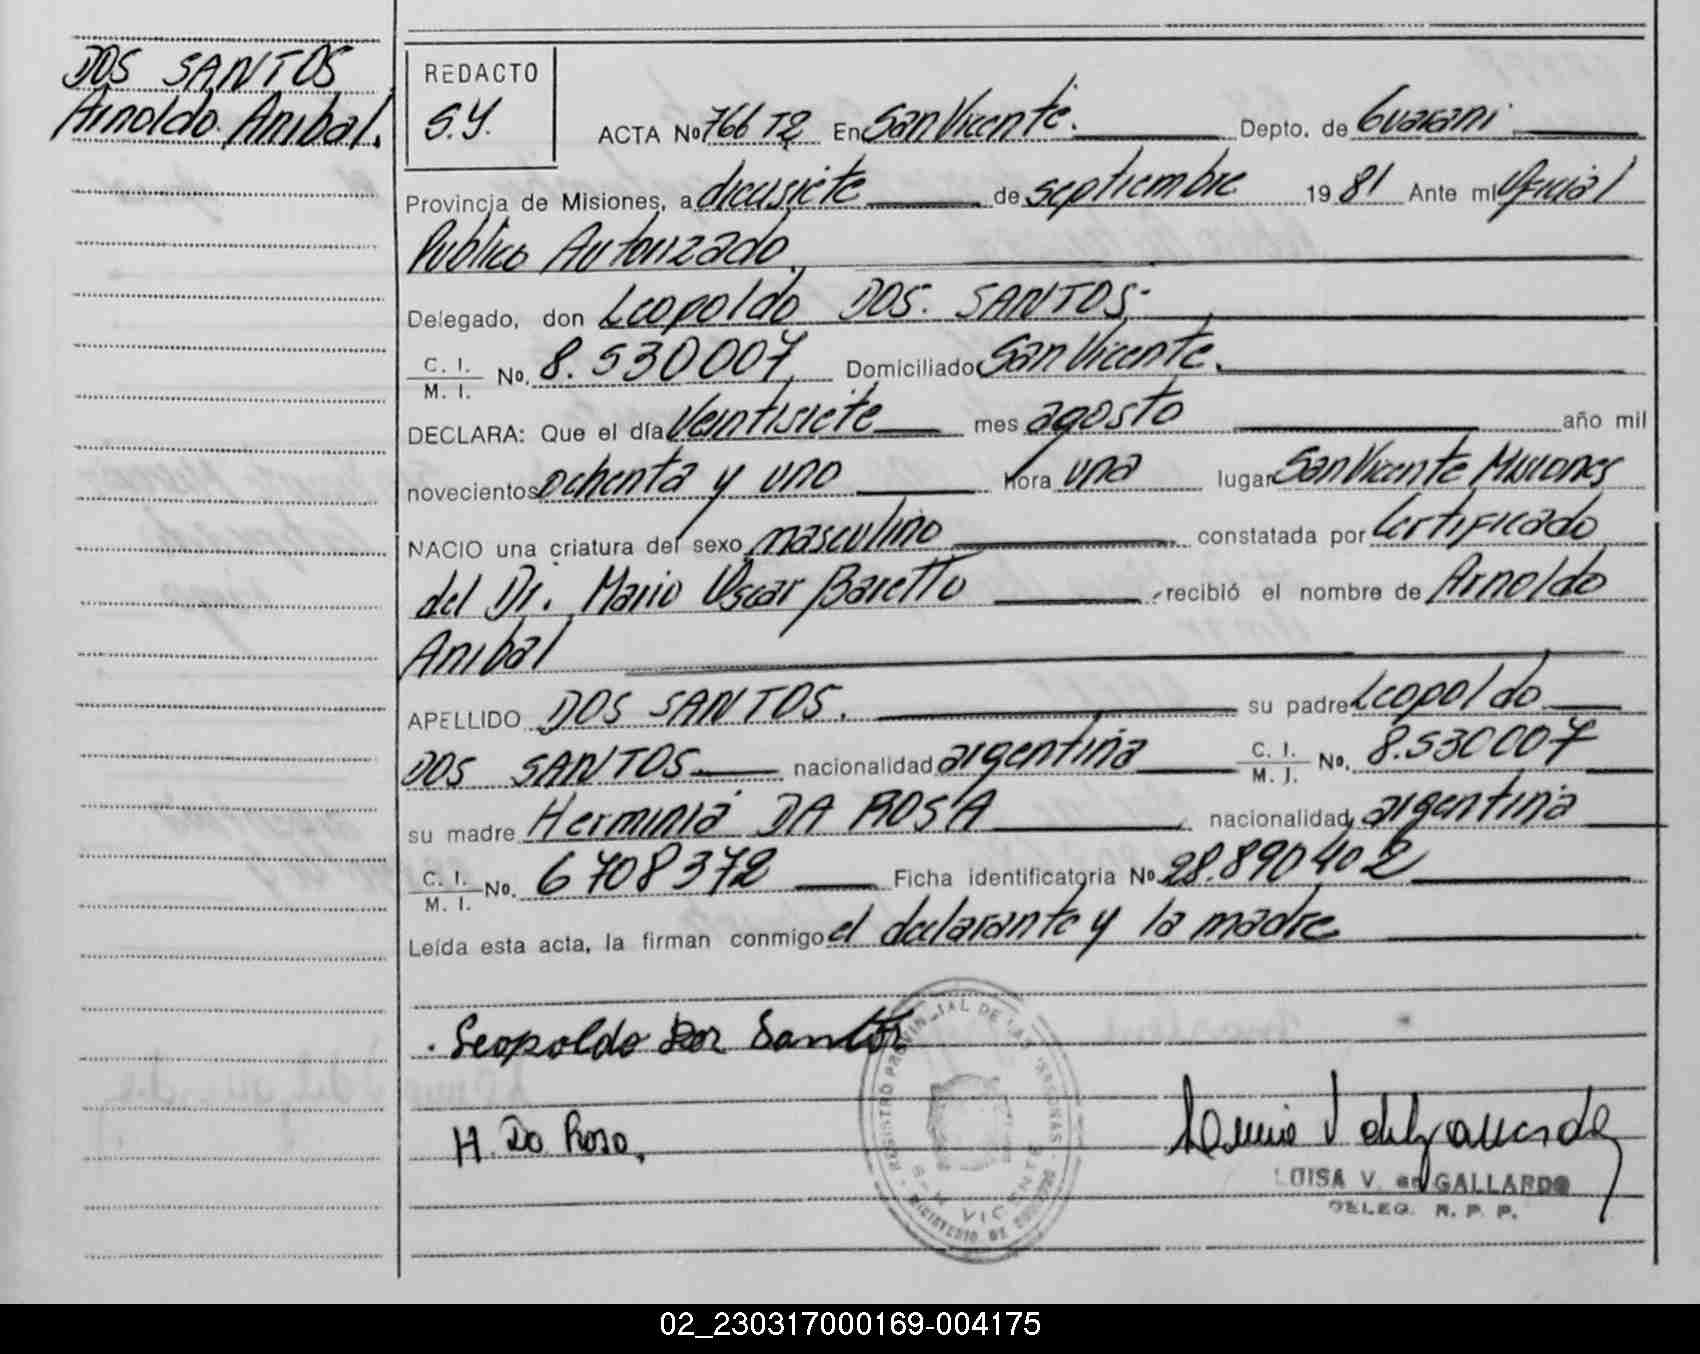 DOS SANTOS
Arnoldo Anibal.
REDACTO
S.Y.
ACTA No 766 T2 En San Vicente. Depto. de Guarani
Provincia de Misiones, a diecisiete de septiembre 19 81 Ante mi Oficial
Publico Autorizado
Delegado, don Leopoldo DOS. SANTOS.
C. I. / M. I. No. 8.530007 Domiciliado San Vicente.
DECLARA: Que el día Veintisiete mes agosto año mil
novecientos ochenta y uno hora una lugar San Vicente Misiones
NACIO una criatura del sexo masculino constatada por Certificado
del Dr. Mario Oscar Baretto recibió el nombre de Arnoldo
Anibal
APELLIDO DOS SANTOS. su padre Leopoldo
DOS SANTOS nacionalidad argentina C. I. / M. I. No. 8.530007
su madre Herminia DA ROSA nacionalidad argentina
C. I. / M. I. No. 6708372 Ficha identificatoria No 28.890402
Leída esta acta, la firman conmigo el declarante y la madre
Leopoldo Dos Santos
H. Da Rosa.
REGISTRO PROVINCIAL DE LAS PERSONAS
VICENTE
LUISA V. de GALLARDO
DELEG. R. P. P.
02_230317000169-004175